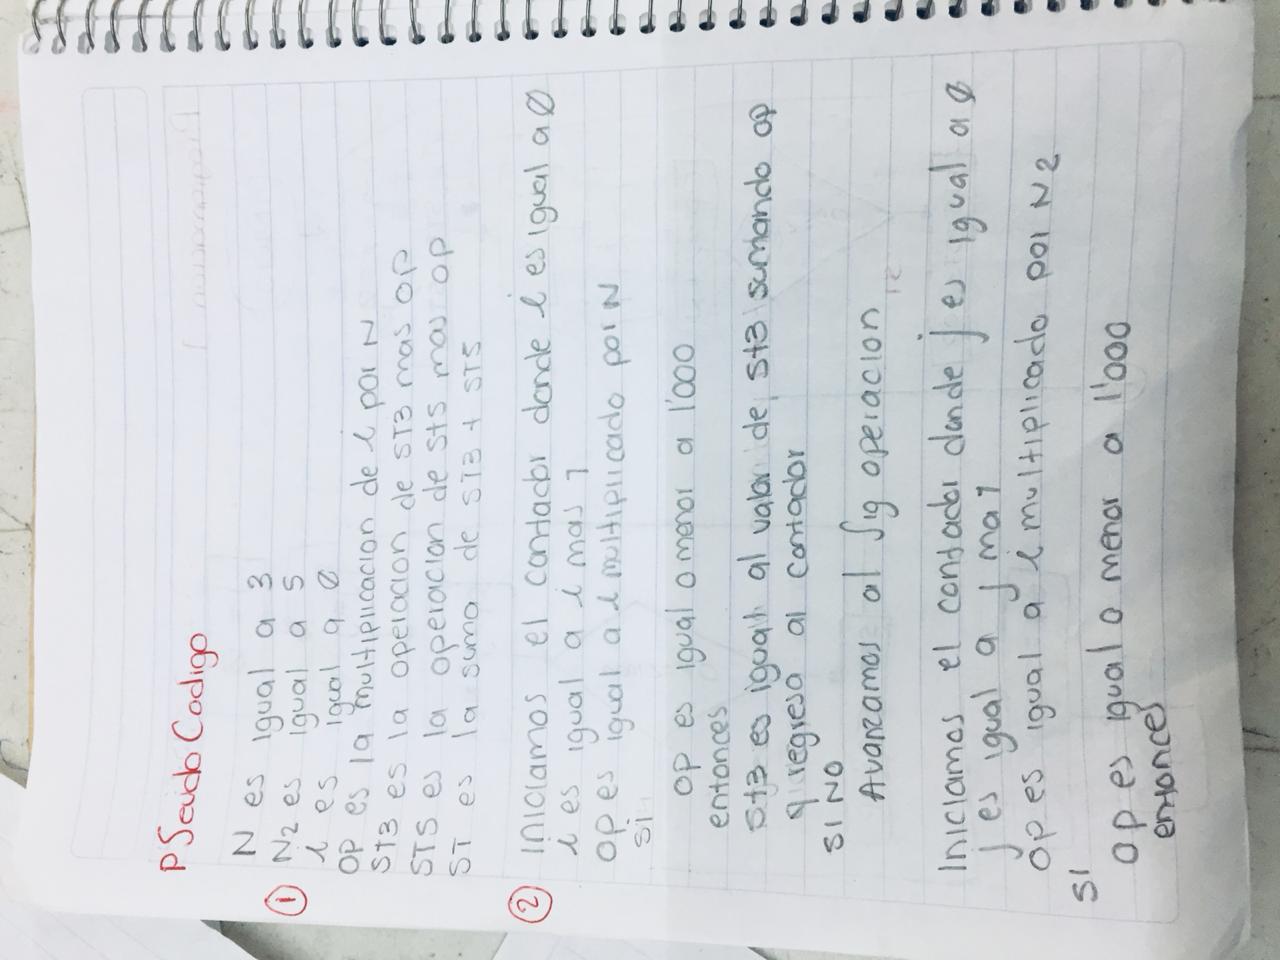 PSeudo Codigo
N es igual a 3
① N2 es igual a 5
i es igual a 0
OP es la multiplicacion de i por N
St3 es la operacion de ST3 mas OP
ST5 es la operacion de st5 mas OP
ST es la suma de ST3 + ST5
② iniciamos el contador donde i es igual a 0
i es igual a i mas 1
OP es igual a i multiplicado por N
si
OP es igual o menor a 1'000
entonces
St3 es igual al valor de St3 sumando op
y regresa al contador
SI NO
Avanzamos al sig operacion
Iniciamos el contador donde j es igual a 0
j es igual a j mas 1
OP es igual a i multiplicado por N2
SI
OP es igual o menor a 1'000
entonces